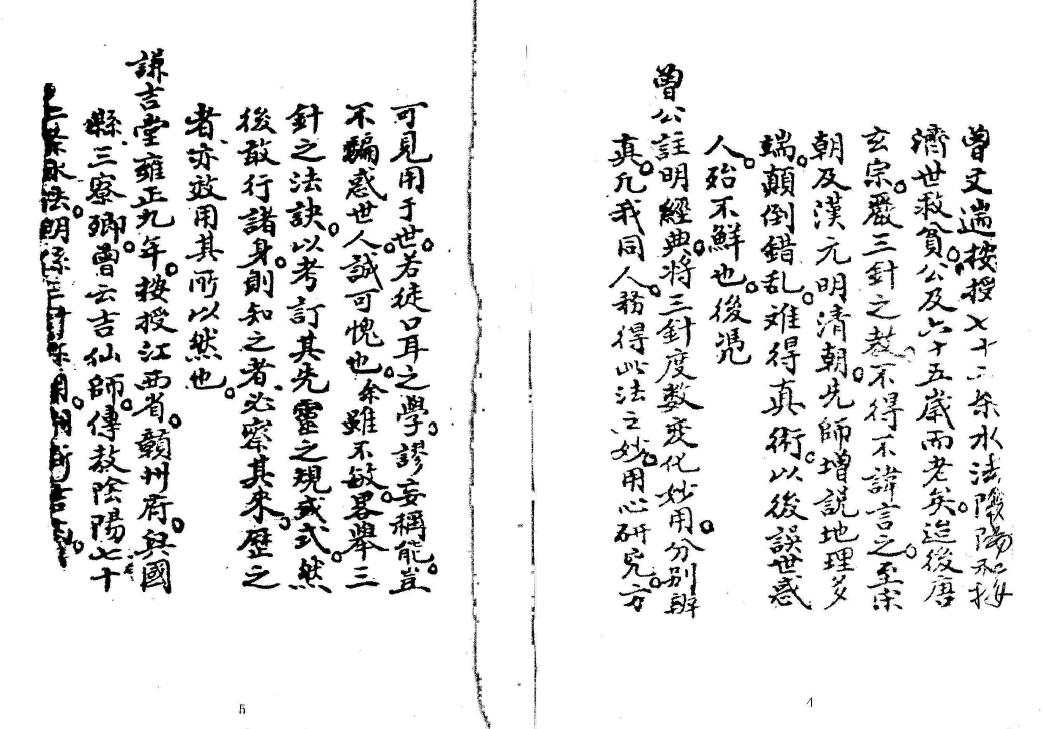 曾文遄按授七十二条水法陰陽和按
濟世救貧。公及六十五歲而老矣。迨後唐
玄宗。嚴三針之教。不得不諱言之。至宋
朝及漢元明清朝。先師增説地理多
端。顛倒錯乱。难得真術。以後誤世惑
人。殆不鮮也。後凴
曾公註明經典。將三針度數变化妙用。分别辨
真。凡我同人。務得此法之妙。用心研究。方
4
可見用于世。若徒口耳之學。謬妄稱能。豈
不騙惑世人。誠可愧也。余雖不敏。畧舉三
針之法訣。以考訂其先靈之規或式。然
後敢行諸身。則知之者。必察其来歷之
者。亦效用其所以然也。
謙吉堂雍正九年。按授江西省。贛州府。興國
縣。三寮鄉。曾云吉仙師。傳教陰陽七十
二条水法。明
5